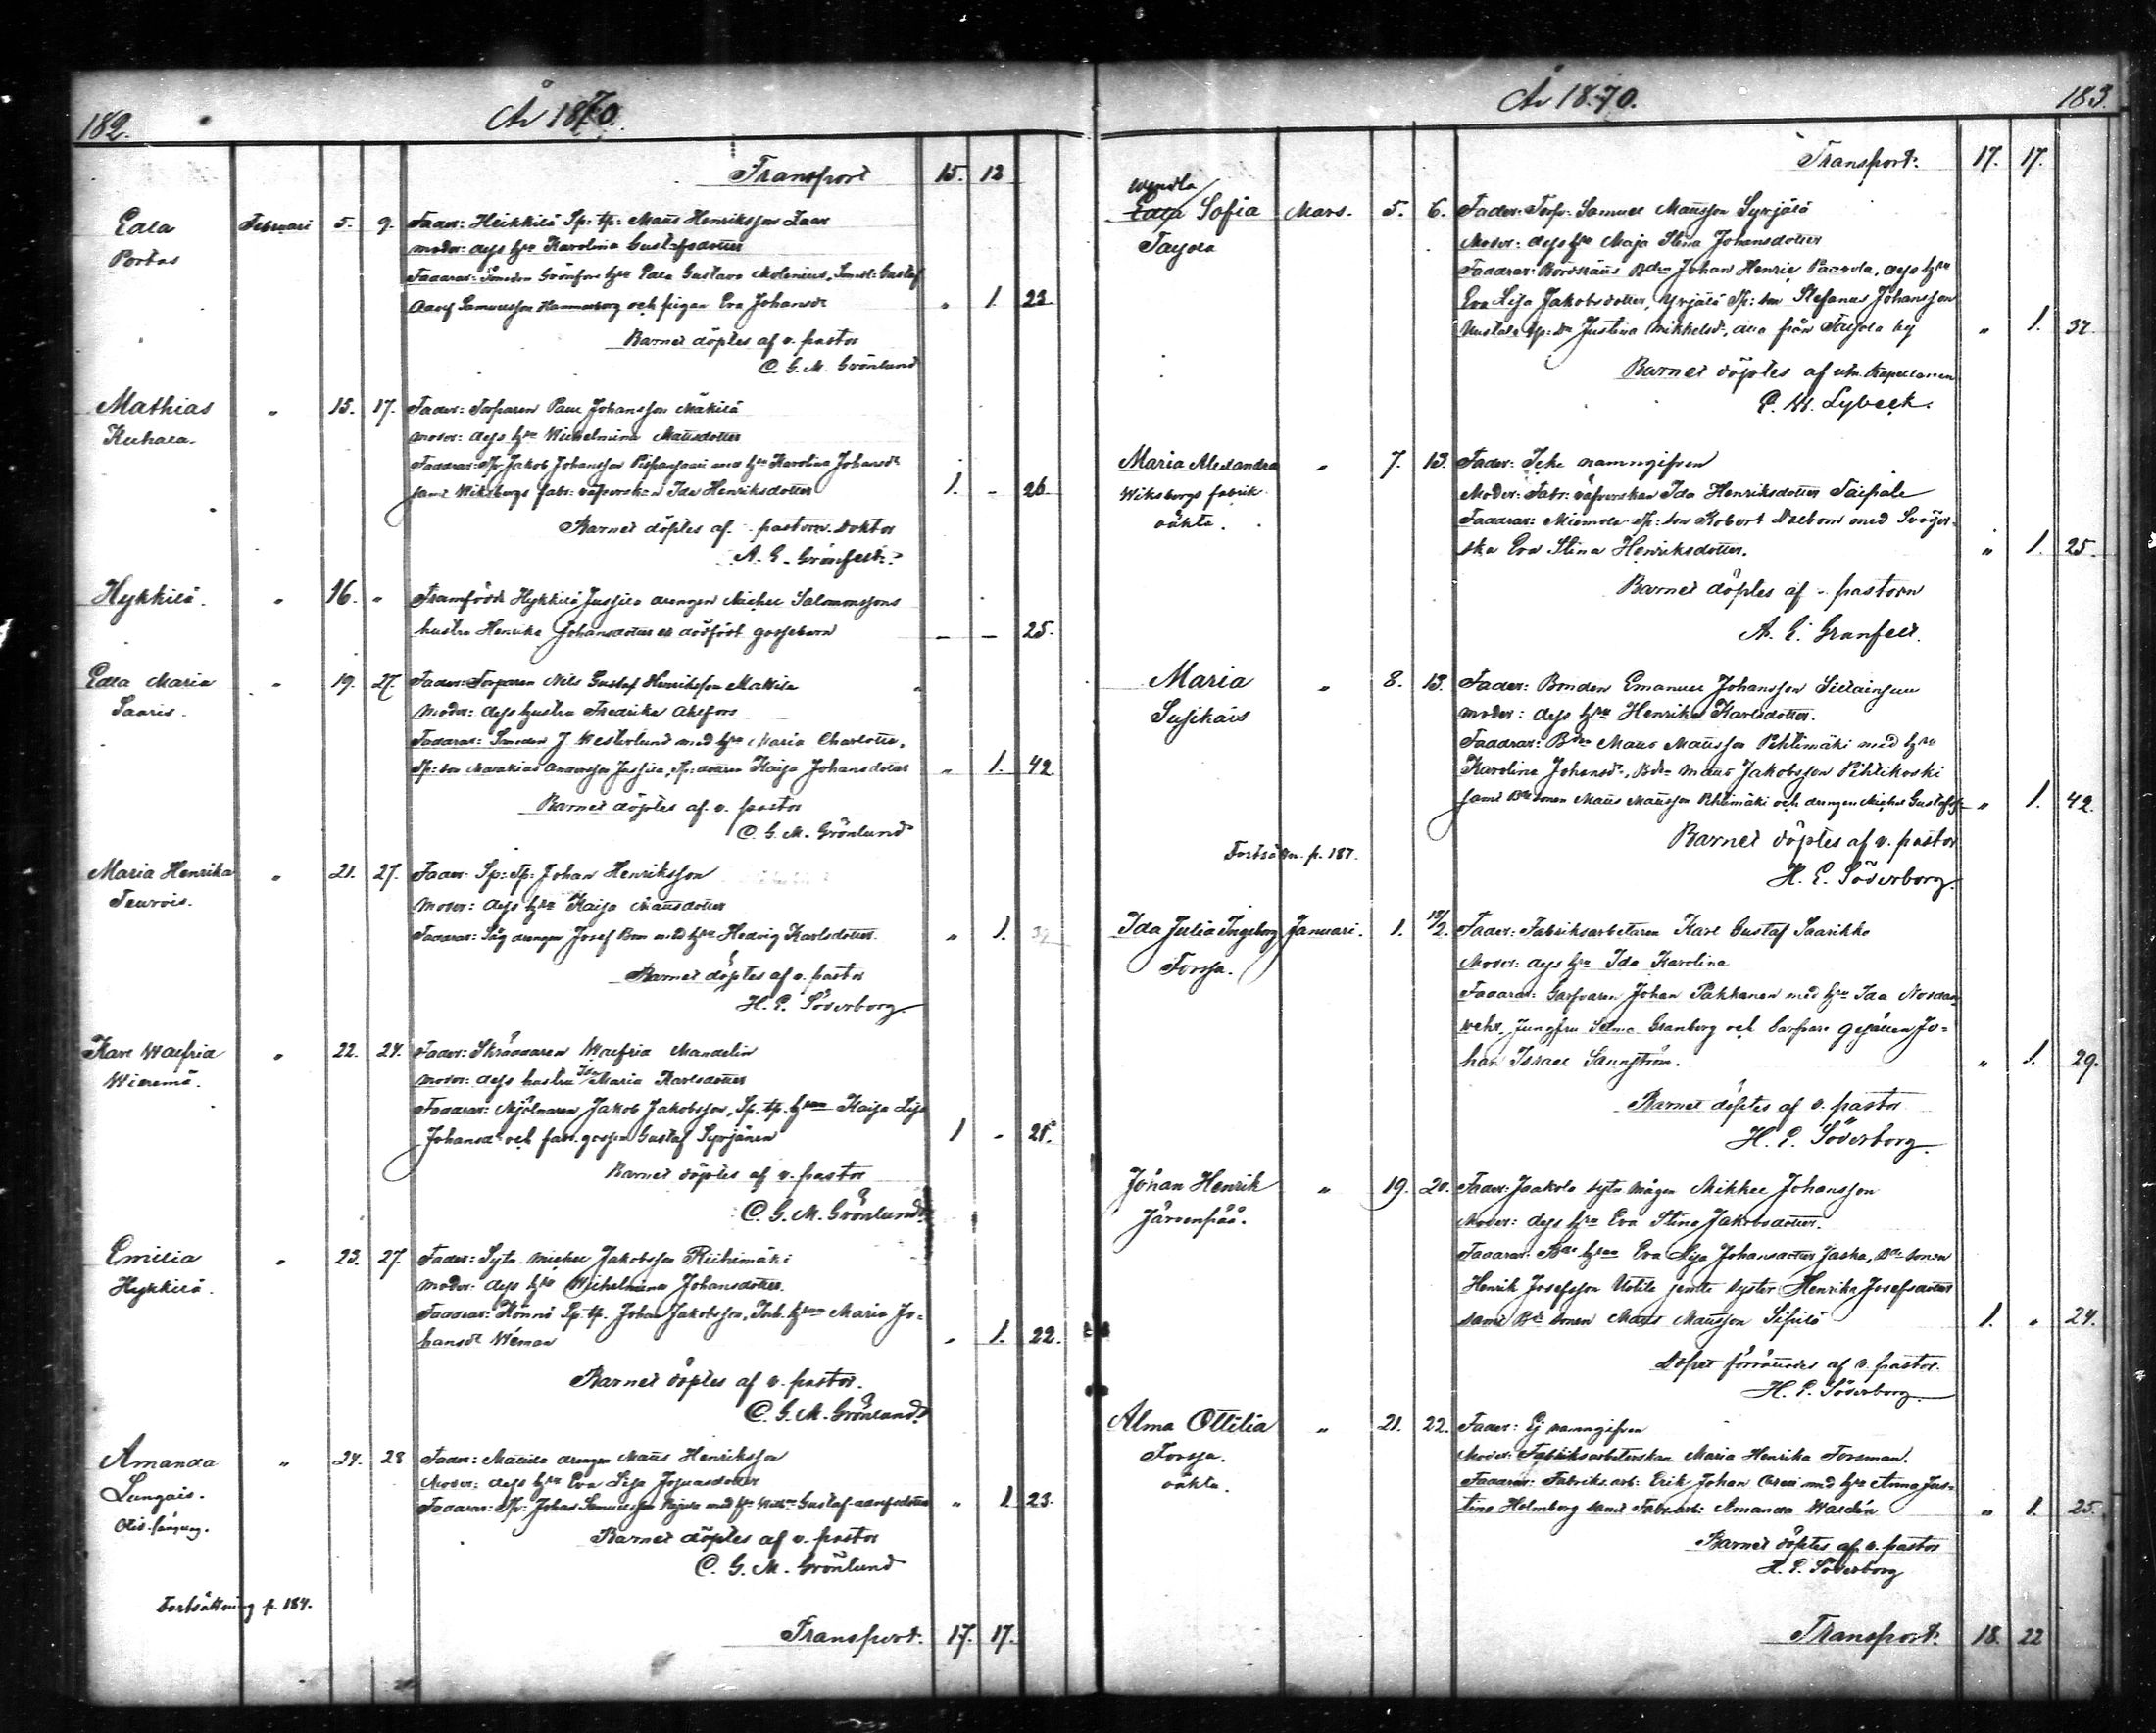 182.
År 1870.
Transport 15. 12
Edla Februari 5. 9. Fader: Heikkilä Sp: tp: Matts Henriksson Laar
Portas moder: dess hru Karolina Gustafsdotter
Faddrar: Smeden Grönfors hru Edla Gustava Molenius, Smed: Gustaf
Adolf Samuelsson Hammarborg och pigan Eva Johansdr " 1. 23
Barnet döptes af v. pastor
C. G. M. Grönlund
Mathias " 15. 17. Fader: Torparen Paul Johansson Mäkilä
Kuhala. moder: dess hru Wilhelmina Mattsdotter
Faddrar: Tp: Jakob Johansson med hru Karolina Johansdr
samt Wiksbergs fabr: väfverskan Ida Henriksdotter 1. - 26
Barnet döptes af pastorn Doktor
A. E. Granfelt.
Hykkilä. " 16. " Framfödde Hykkilä Jussila drengen Michel Salomonssons
hustru Henrika Johansdotter ett dödfödt gossebarn — — 25.
Edla Maria " 19. 27. Fader: Torparen Nils Gustaf Henriksson Mattila
Saaris. Moder: dess hustru Fredrika Ahlfors
Faddrar: Smeden J Westerlund med hru Maria Charlotta,
Sp: son Malakias Andersson Jussila, Sp: dottren Kaisa Johansdotter " 1. 42
Barnet döptes af v. pastor
C. G. M. Grönlund
Maria Henrika " 21. 27. Fader: Sp: Tp: Johan Henriksson
Teurois. Moder: dess hru Kaisa Mattsdotter
Faddrar: Såg drengen Josef Bom med hru Hedvig Karlsdotter. " 1.
Barnet döptes af v. pastor
H. E. Söderborg.
Karl Walfrid " 22. 24. Fader: Skräddaren Walfrid Mandelin
Wieremä. moder: dess hustru Ida Maria Karlsdotter
Faddrar: Mjölnaren Jakob Jakobsson, Sp. tp. hrun Kaisa Lisa
Johansdr och fabr. gossen Gustaf Syrjänen 1 - 25.
Barnet döptes af v. pastor
C. G. M. Grönlund
Emilia " 23. 27. Fader: Sytn. Michel Jakobsson Riihimäki
Hykkilä. Moder: dess hru Wilhelmina Johansdotter.
Faddrar: Hönnö Sp. tp. Johan Jakobsson, Inh. hrun Maria Jo=
hansdr Wéman " 1. 22.
Barnet döptes af v. pastor.
C. G. M. Grönlund
Amanda " 24. 28 Fader: Mattila drengen Matts Henriksson
Lungais. Moder: dess hru Eva Lisa Josuasdotter
Faddrar: Tp: Johan Samuelsson med hru Gustaf-adolfsdotter " 1. 23.
Barnet döptes af v. pastor
C. G. M. Grönlund
Fortsättning p. 184.
Transport. 17. 17.
År 1870.
183.
Transport: 17. 17.
Wendla
Edla Sofia Mars. 5. 6. Fader: Torp: Samuel Mattsson Syrjälä
Tayola Moder: dess hru Maja Stina Johansdotter
Faddrar: Bdn Johan Henric Paavola, dess hru
Eva Lisa Jakobsdotter, Yrjälä Sp: son Stefanus Johansson
Justina Mikkelsd., alla från Tayola by " 1. 37
Barnet döptes af utn. Kapellanen
C. W. Lybeck.
Maria Alexandra " 7. 13. Fader: Icke namngifven
Wiksbergs fabrik Moder: Fabr: väfverskan Ida Henriksdotter Taipale
oäkta. Faddrar: Miemola Sp: son Robert Dalbom med Svöger=
ska Eva Stina Henriksdotter. " 1. 25.
Barnet döptes af pastorn
A. E. Granfelt.
Maria " 8. 13. Fader: Bonden Emanuel Johansson Sillainsuu
Susikais Moder: dess hru Henrika Karlsdotter.
Faddrar: Bdn Matts Mattsson Pihtimäki med hru
Karolina Johansdr, Bdn Matts Jakobsson Pihlikoski
samt Bde sonen Matts Mattsson Pihtimäki och drengen Michel Gustafss " 1. 42.
Barnet döptes af v. pastor
H. E. Söderborg.
Fortsättn. p. 187.
Ida Julia Ingeborg Januari. 1. 18/2. Fader: Fabriksarbetaren Karl Gustaf Saarikko
Forssa. Moder: dess hru Ida Karolina
Faddrar: Garfvaren Johan Pakkanen med hru Ida Nordan
wehr, Jungfru Selma Granberg och Garfvare gesällen Jo=
han Israel Sannström. " 1. 29.
Barnet döptes af v. pastor
H. E. Söderborg.
Johan Henrik " 19. 20. Fader: Jaakola sytn mågen Mikkel Johansson
Järvenpää. Moder: dess hru Eva Stina Jakobsdotter.
Faddrar: Bde hrun Eva Lisa Johansdotter Jaska, Bde sonen
Henrik Josefsson Uotila jemte syster Henrika Josefsdotter
samt Bde sonen Matts Mattsson Sipilä 1. " 24.
Dopet förrättades af v. pastor.
H. E. Söderborg
Alma Ottilia " 21. 22. Fader: Ej namngifven
Forssa. Moder: Fabriksarbeterskan Maria Henrika Forsman.
oäkta. Faddrar: Fabriks arb: Erik Johan med hru Anna Jus=
tina Holmberg samt Fabr. arb: Amanda Waldén " 1. 25.
Barnet döptes af v. pastor
H. E. Söderborg
Transport. 18. 22